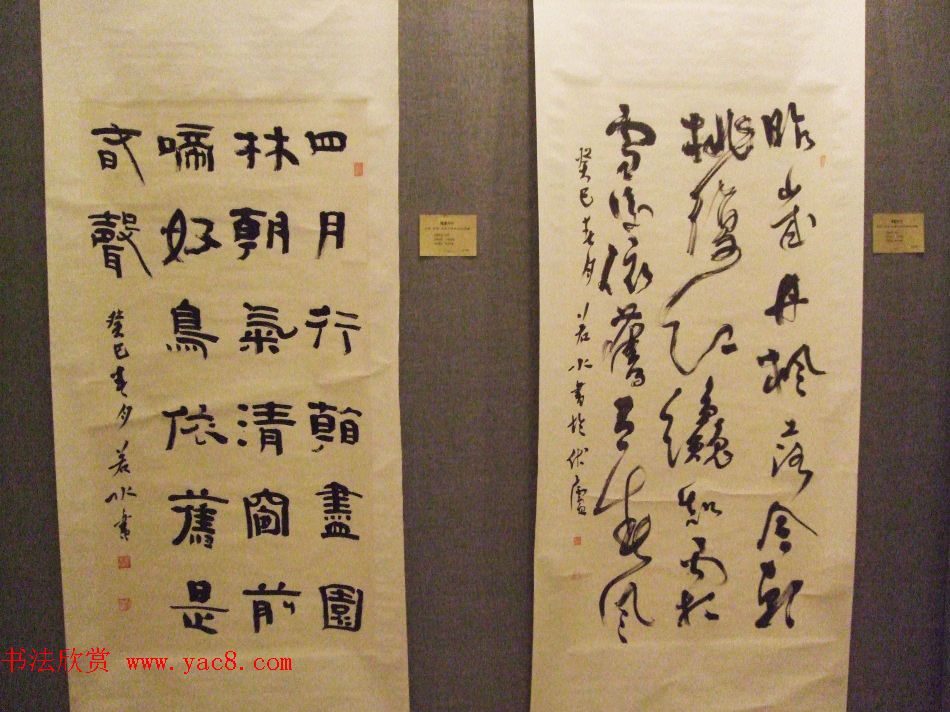 昨歲丹楓落今朝
桃復紅纔知雨
雪後依舊春風
癸巳春月若水書於伏廬
四月行盡園
林朝氣清窗前
啼好鳥依舊是
春聲
癸巳春月若水書
书法欣赏 www.yac8.com